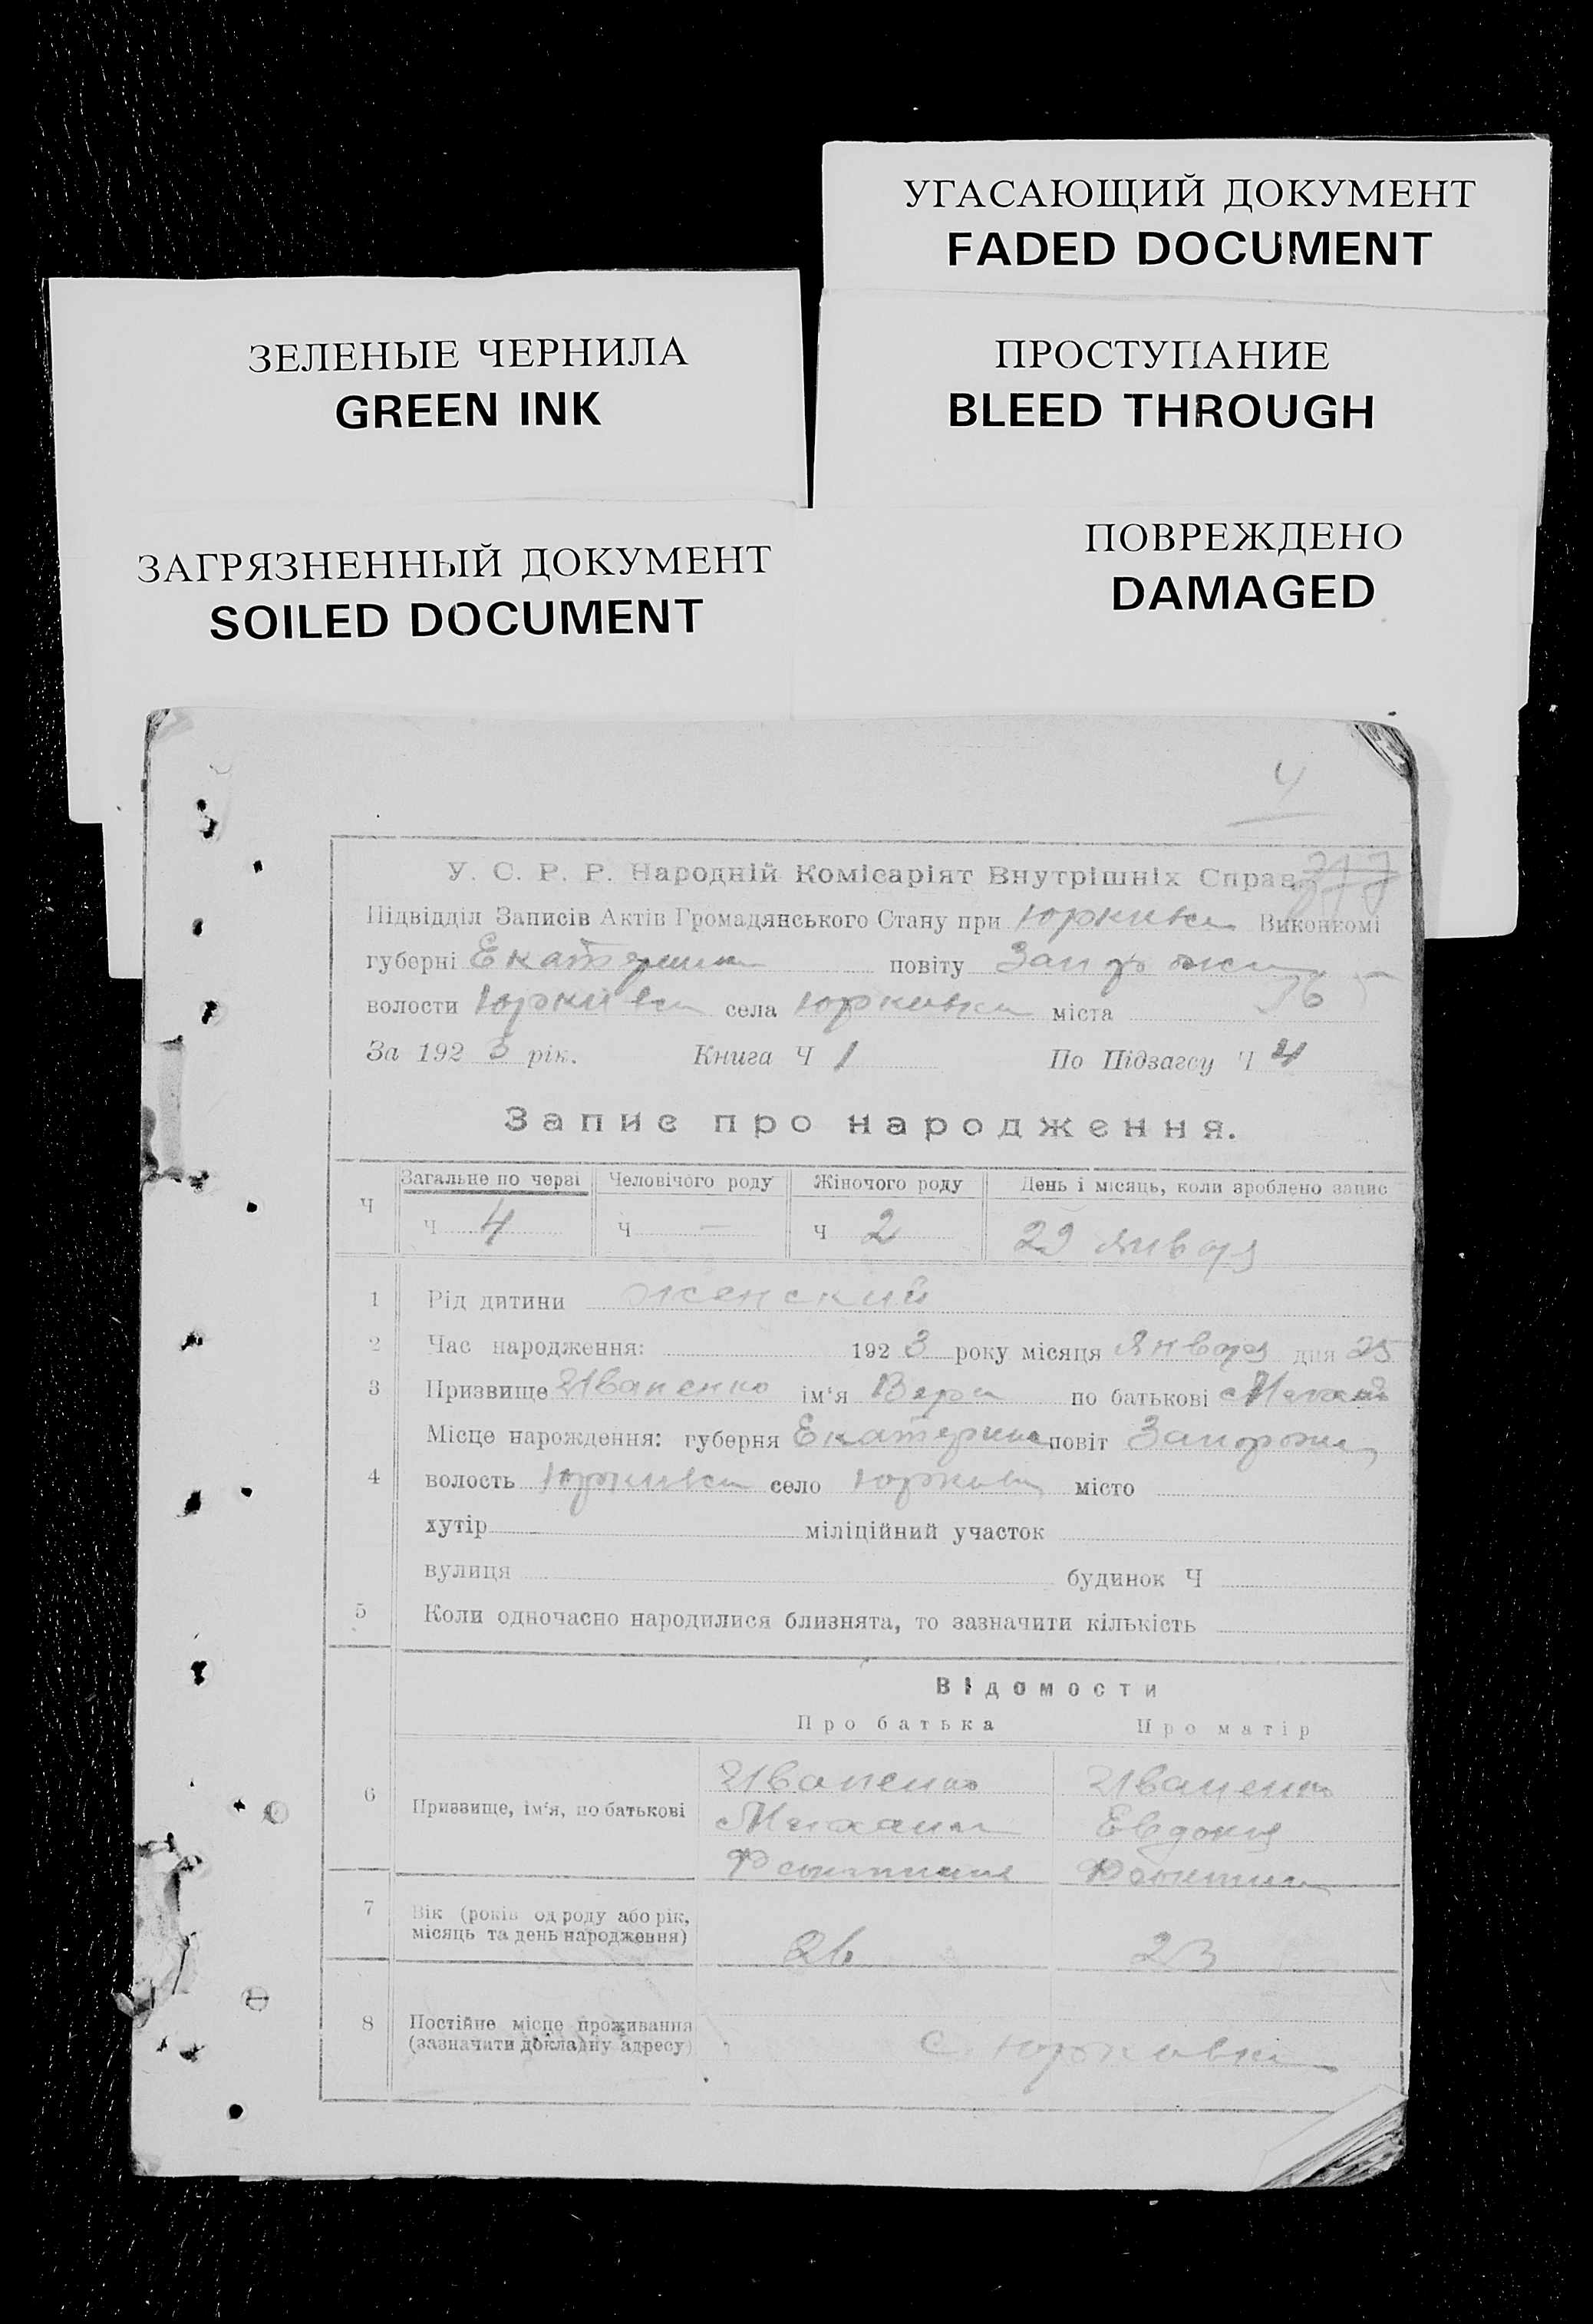 УГАСАЮЩИЙ ДОКУМЕНТ
FADED DOCUMENT
ЗЕЛЕНЫЕ ЧЕРНИЛА
GREEN INK
ПРОСТУПАНИЕ
BLEED THROUGH
ЗАГРЯЗНЕННЫЙ ДОКУМЕНТ
SOILED DOCUMENT
ПОВРЕЖДЕНО
DAMAGED
4
У. С. Р. Р. Народній Комісаріят Внутрішніх Справ
Підвідділ Записів Актів Громадянського Стану при Юркивки Виконкомі
губерні Екатерин повіту Запорожск
волости Юркивки села Юркивки міста
За 192 3 рік. Книга Ч 1 По Підзагсу Ч 4
Запис про народження.
Ч Загальне по черзі Человічого роду Жіночого роду День і місяць, коли зроблено запис
Ч 4 Ч — Ч 2 29 января
1 Рід дитини женский
2 Час народження: 192 3 року місяця Января дня 25
3 Призвище Иваненко ім'я Вера по батькові Михаил
Місце нарождення: губерня Екатерин повіт Запорожск
4 волость Юркивка село Юркивка місто
хутір міліційний участок
вулиця будинок Ч
5 Коли одночасно народилися близнята, то зазначити кількість
Відомости
Про батька Про матір
Иваненко Иваненко
6 Призвище, ім'я, по батькові Михаил Евдокия
7 Вік (років од роду або рік,
місяць та день народження) 26 23
8 Постійне місце проживання
(зазначати докладну адресу) с. Юрковка